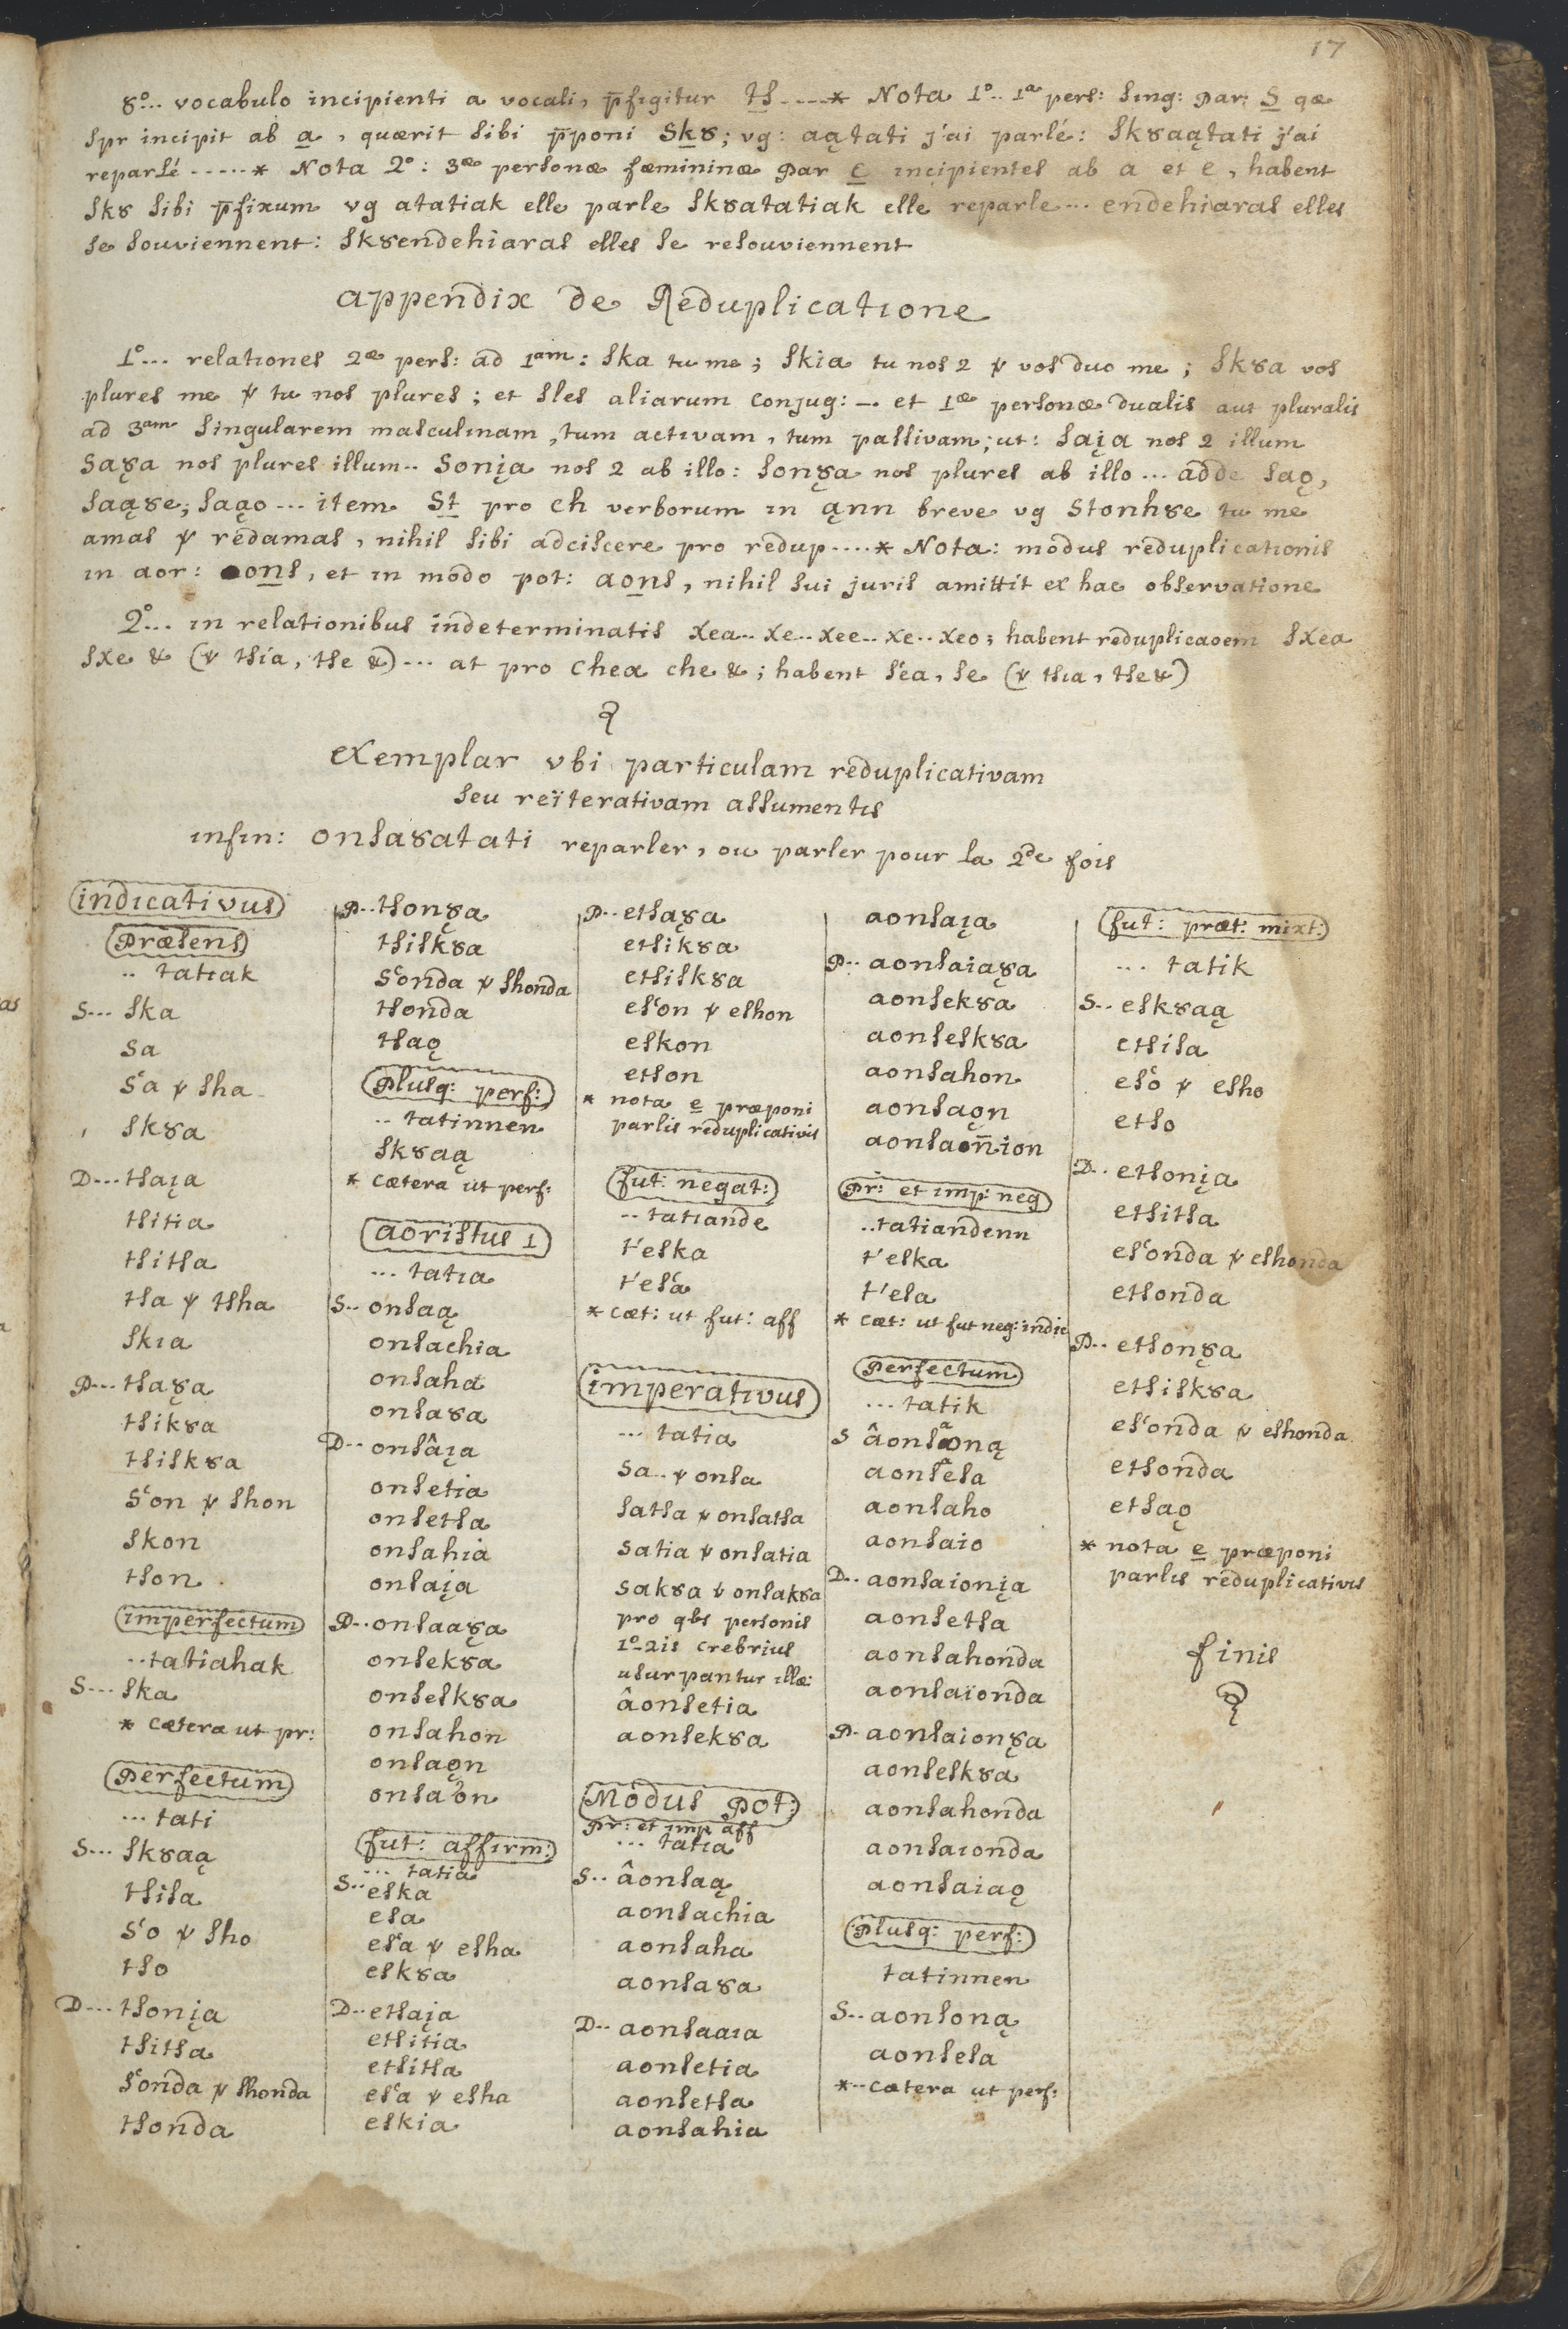 17
8°... vocabulo incipienti a vocali, p̄figitur ts ....* Nota 1°.. 1ᵃ pers: sing: par: S qæ
spr incipit ab a, quærit sibi p̄poni Sk8; vg: aątati j'ai parlé: sk8aątati j'ai
reparlé .....* Nota 2°: 3æ personæ fæmininæ par c incipientes ab a et e, habent
sk8 sibi p̄fixum vg atatiak elle parle sk8atatiak elle reparle... endehiaras elles
se souviennent: sk8endehiaras elles se resouviennent
appendix de Reduplicatione
1°... relationes 2æ pers: ad 1am: ska tu me; skia tu nos 2 ꝟ vos duo me; sk8a vos
plures me ꝟ tu nos plures; et sles aliarum conjug: _. et 1æ personæ dualis aut pluralis
ad 3am singularem masculinam, tum activam, tum passivam; ut: saįa nos 2 illum
sa8̨a nos plures illum.. sonįa nos 2 ab illo: son8̨a nos plures ab illo... adde saǫ,
saą8e; saąo... item St pro ch verborum in ąnn breve vg stonh8e tu me
amas ꝟ redamas, nihil sibi adciscere pro redup....* Nota: modus reduplicationis
in aor: ons, et in modo pot: aons, nihil sui juris amittit ex hac observatione
2°... in relationibus indeterminatis xea.. xe.. xee.. xe.. xeo; habent reduplicaoem sxea
sxe & (ꝟ tsia, tse &)... at pro chea che &; habent s'ea, se (ꝟ tsia, tse &)
exemplar ubi particulam reduplicativam
seu reïterativam assumentis
infin: onsa8atati reparler, ou parler pour la 2de fois
indicativus
Præsens
.. tatiak
S... ska
sa
s'a ꝟ sha
sk8a
D... tsaįa
tsitia
tsitsa
tsa ꝟ tsha
skia
P... tsa8̨a
tsik8a
tsisk8a
s'on ꝟ shon
skon
tson
imperfectum
..tatiahak
S... ska
* cætera ut pr:
Perfectum
... tati
S... sk8aą
tsisa
s'o ꝟ sho
tso
D... tsonįa
tsitsa
s'onda ꝟ shonda
tsonda
P.. tson8̨a
tsisk8a
s'onda ꝟ shonda
tsonda
tsaǫ
Plusq: perf:
.. tatinnen
sk8aą
* cætera ut perf:
aoristus 1
... tatia
S.. onsaą
onsachia
onsaha
onsa8a
D.. onsâįa
onsetia
onsetsa
onsahia
onsaįa
P.. onsaa8̨a
onsek8a
onsesk8a
onsahon
onsaǫn
onsa'on
fut: affirm:
... tatia
S.. eska
esa
es'a ꝟ esha
esk8a
D.. etsaįa
etsitia
etsitsa
es'a ꝟ esha
eskia
P.. etsa8̨a
etsik8a
etsisk8a
es'on ꝟ eshon
eskon
etson
* nota e præponi
parlis reduplicativis
fut: negat:
.. tatiande
t'eska
t'esa
* cæt: ut fut: aff
imperativus
... tatia
sa.. ꝟ onsa
satsa ꝟ onsatsa
satia ꝟ onsatia
sak8a ꝟ onsak8a
pro qbs personis
1°2is crebrius
usurpantur illæ:
âonsetia
aonsek8a
Modus Pot:
Pr: et imp aff
... tatia
S.. âonsaą
aonsachia
aonsaha
aonsa8a
D.. aonsaaıa
aonsetia
aonsetsa
aonsahia
aonsaįa
P.. aonsaia8̨a
aonsek8a
aonsesk8a
aonsahon
aonsaǫn
aonsaoñion
Pr: et imp: neg
..tatiandenn
t'eska
t'esa
* cæt: ut fut neg: indic
Perfectum
... tatik
S âonsaoną
aonsesa
aonsaho
aonsaio
D.. aonsaionįa
aonsetsa
aonsahonda
aonsaïonda
P. aonsaion8̨a
aonsesk8a
aonsahonda
aonsaıonda
aonsaiaǫ
Plusq: perf:
tatinnen
S.. aonsoną
aonsesa
*.. cætera ut perf:
fut: præt: mixt:
... tatik
S.. esk8aą
etsisa
es'o ꝟ esho
etso
D.. etsonįa
etsitsa
es'onda ꝟ eshonda
etsonda
P.. etson8̨a
etsisk8a
es'onda ꝟ eshonda
etsonda
etsaǫ
* nota e præponi
parlis reduplicativis
finis